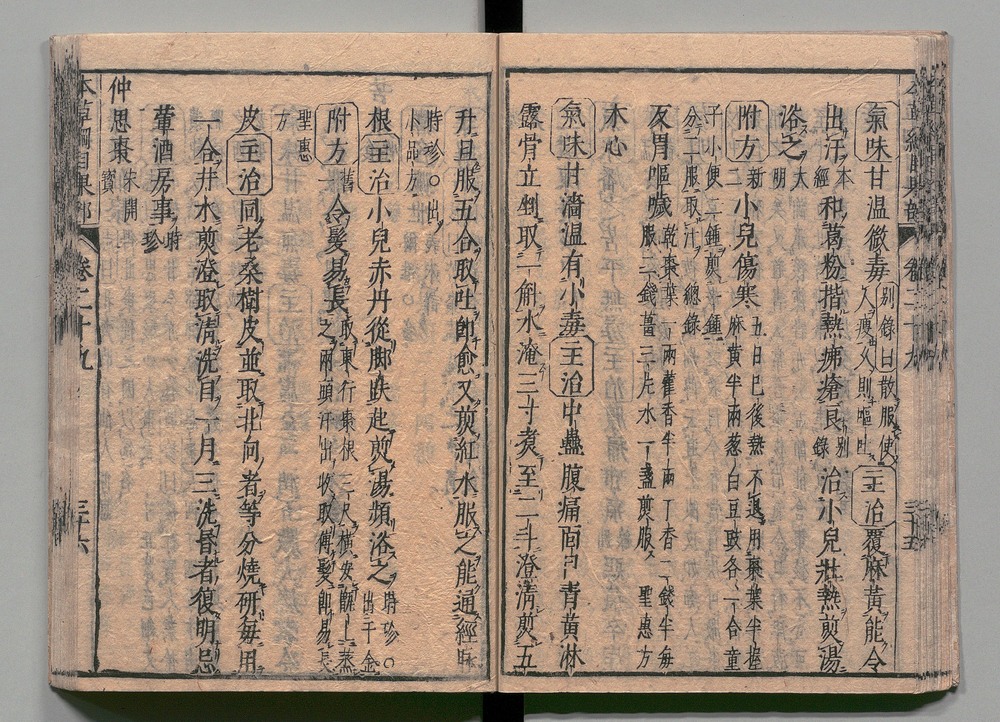 氣味甘温微毒別錄曰散服使人瘦久則嘔吐主治覆麻黃能令
出汗本經和葛粉揩熱疿瘡良別錄治小兒壯熱煎湯
浴之大明
附方新二小兒傷寒五日已後熱不退用棗葉半握麻黃半兩葱白豆豉各一合童
子小便二鍾煎一鍾分二服取汁總錄
反胃嘔噦乾棗葉一兩藿香半兩丁香二錢半每服二錢薑三片水一盞煎服聖惠方
木心
氣味甘濇温有小毒主治中蠱腹痛面目青黃淋
露骨立剉取一斛水淹三寸煑至二斗澄清煎五
升旦服五合取吐卽愈又煎紅水服之能通經脉
時珍○出小品方
根主治小兒赤丹從脚趺起煎湯頻浴之時珍○出千金
附方舊一令髮易長取東行棗根三尺橫安甑上蒸之兩頭汗出收取傅髮卽易長
聖惠方
皮主治同老桑樹皮並取北向者等分燒研每用
一合井水煎澄取清洗目一月三洗昏者復明忌
葷酒房事時珍
仲思棗宋開寶
本草綱目果部 卷二十九 三十五
本草綱目果部 卷二十九 三十六